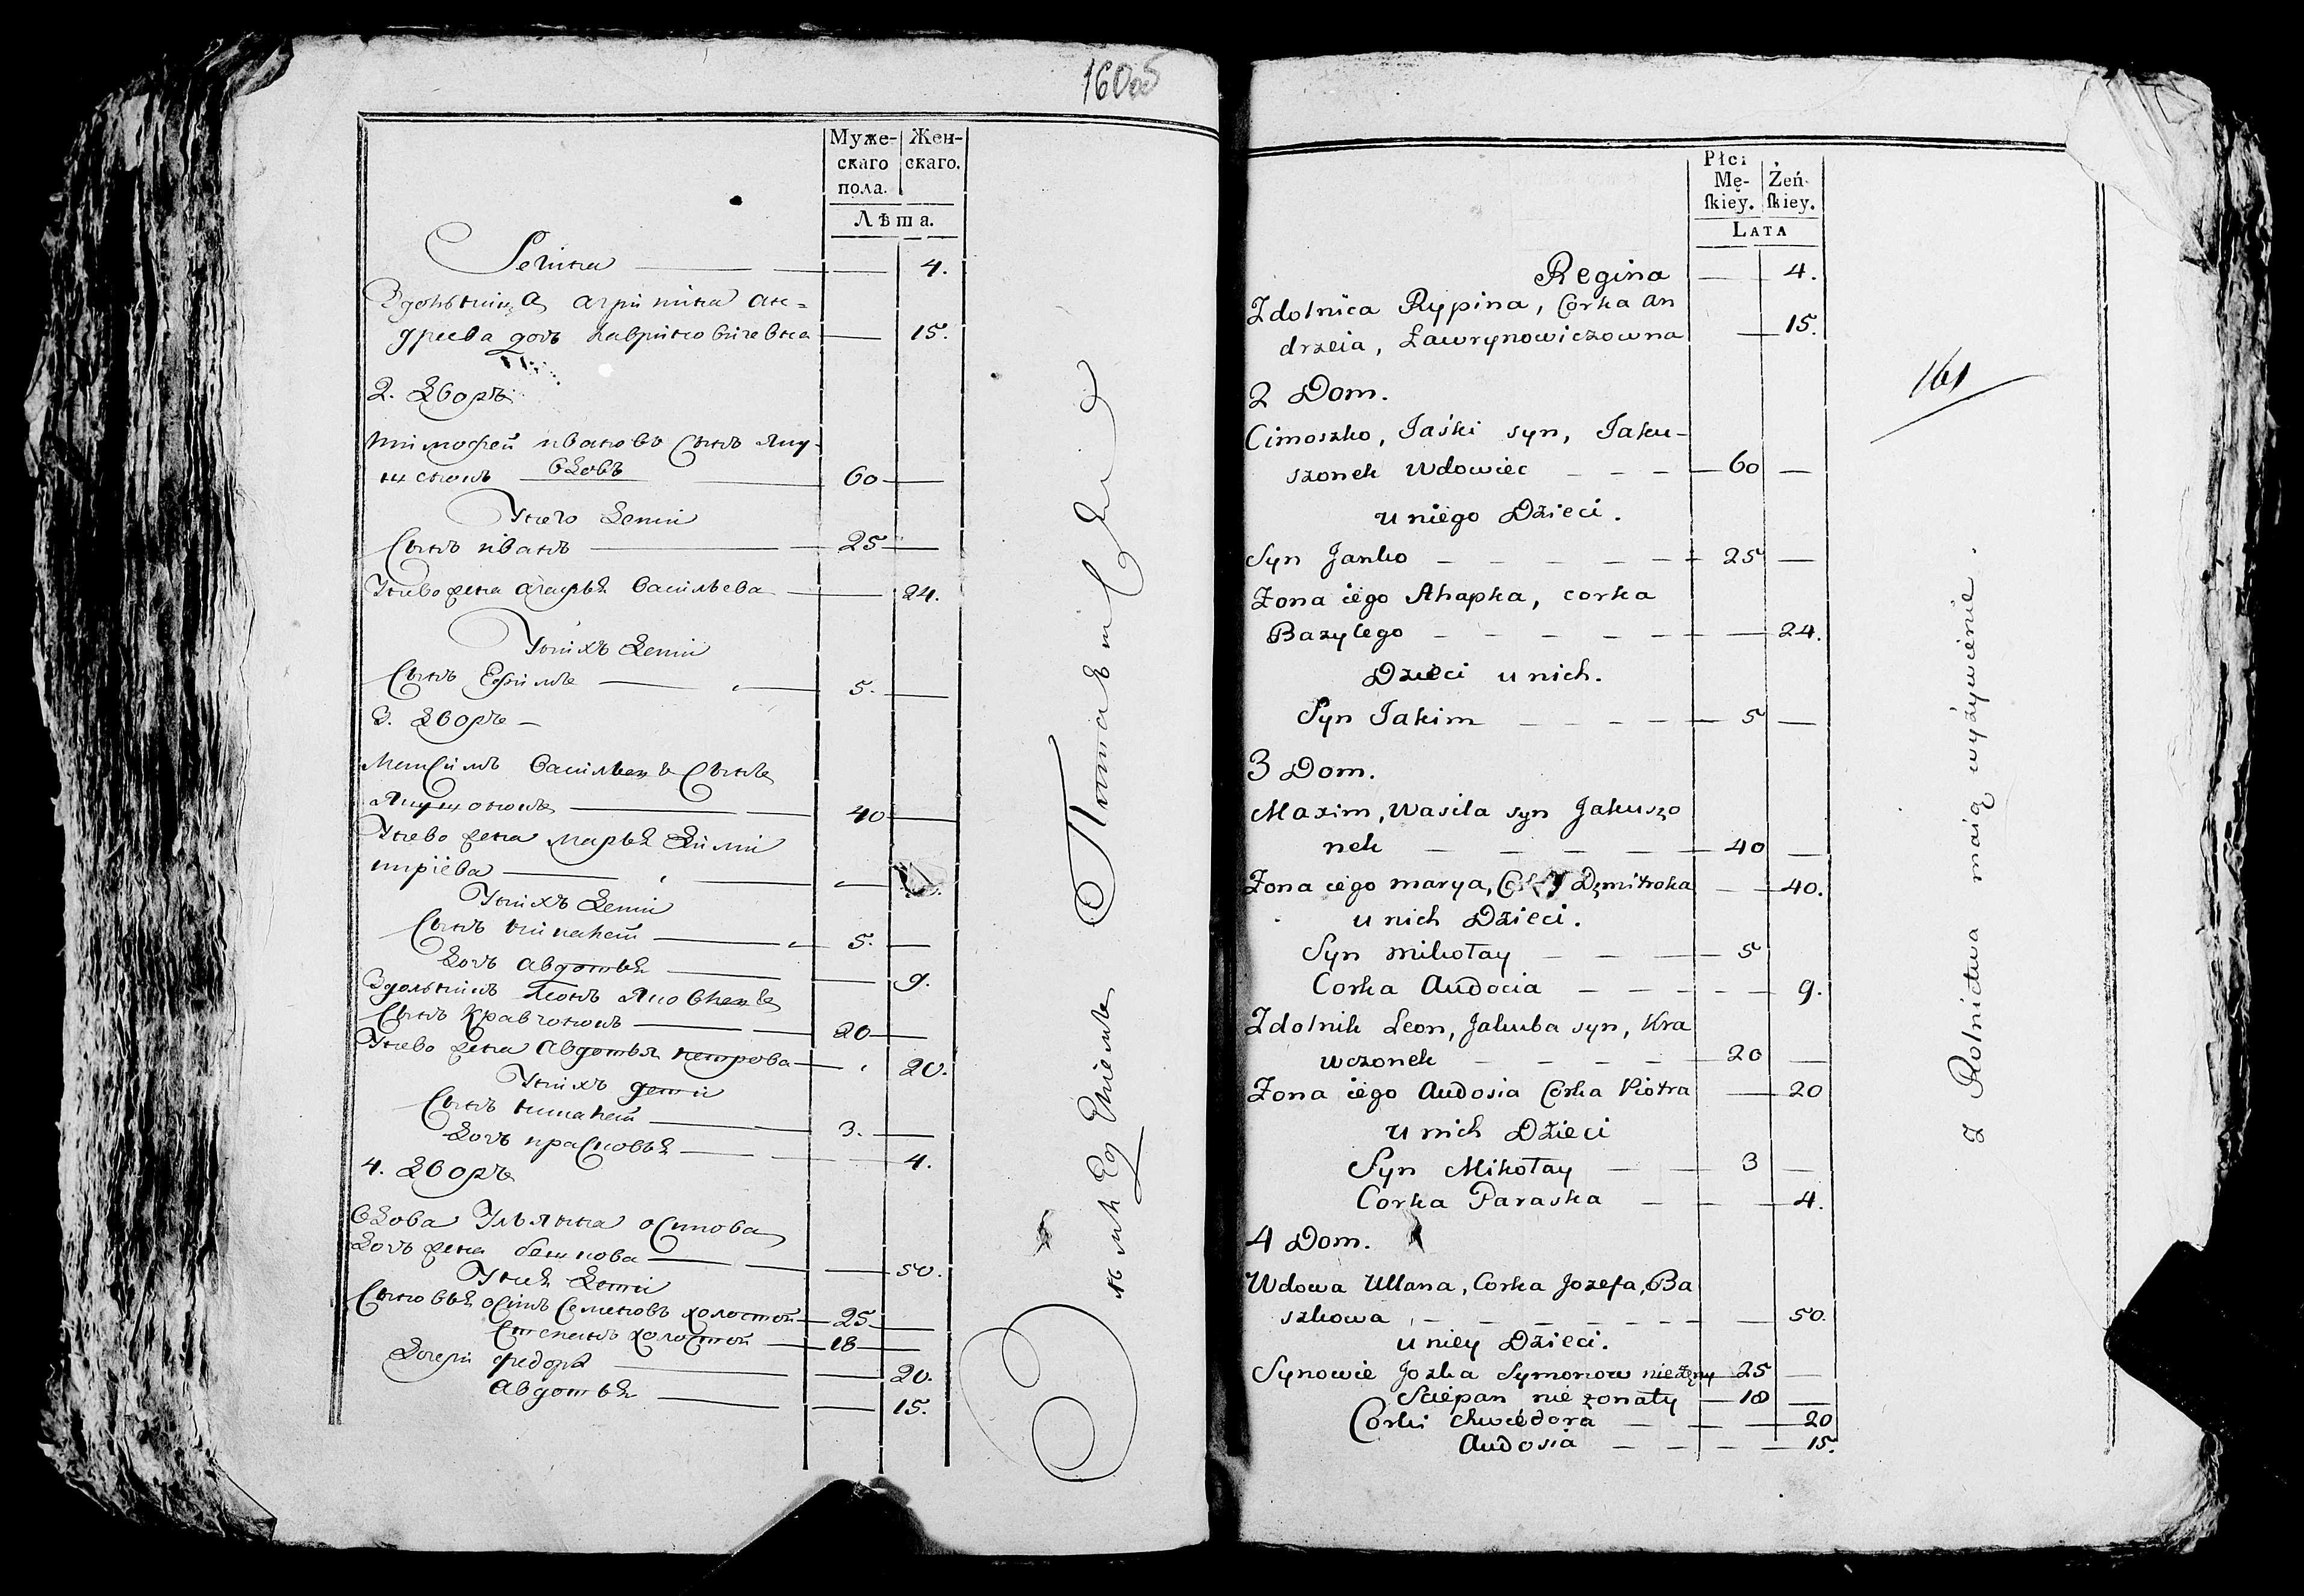 160об
Муже-
скаго
пола.
Жен-
скаго.
Лѣта.
4.
15.
2. Дворъ
Тимофей Ивановъ Сынъ Яку-
шенокъ вдовъ 60
У него Дети
Сынъ Иванъ 25
У нево жена Агафья Васильева 24.
У нихъ Дети
Сынъ Ефимъ 5.
3. Дворъ
Максимъ Васильевъ Сынъ
Якушонокъ 40
У нево жена Марья Дими
тріева
У нихъ Дети
Сынъ Николай 5.
Дочь Авдотья 9.
Здольникъ Леонъ Яковлевъ
Сынъ Кравчонокъ 20
У нево жена Авдотья Петрова 20.
У нихъ дети
Сынъ Николай 3.
Дочь Прасковья 4.
4. Дворъ
Вдова Ульянна Осипова
Дочь жена 50.
У ней Дети
Сыновья Осипъ Семеновъ холостой 25
Степанъ холостой 18
Дочери Федора 20.
Авдотья 15.
Płci
Mę-
skiey.
Żeń-
skiey.
LATA
Regina 4.
Zdolnica Rypina, Corka An
drzeia, Ławrynowiczowna 15.
2 Dom.
Cimoszko, Jaśki syn, Jaku-
szonek Wdowiec 60
u niego Dzieci.
Syn Janko 25
Zona iego Ahapka, corka
Bazylego 24.
Dzieci u nich.
Syn Jakim 5
3 Dom.
Maxim, Wasila syn Jakuszo
nek 40
Zona iego marya, Corka Dzmitroka 40.
u nich Dzieci.
Syn mikołay 5
Corka Audocia 9.
Zdolnik Leon, Jakuba syn, Kra
wczonek 20
Zona iego Audosia Corka Piotra 20
u nich Dzieci
Syn Mikołay 3
Corka Paraska 4.
4 Dom.
Wdowa Ullana, Corka Jozefa, Ba
szkowa 50.
u niey Dzieci.
Synowie Jozka Symonow nieżeny 25
Sciepan nie zonaty 18
Corki Chwiedora 20
Audosia 15.
161
z Rolnictwa maią wyżywienie.